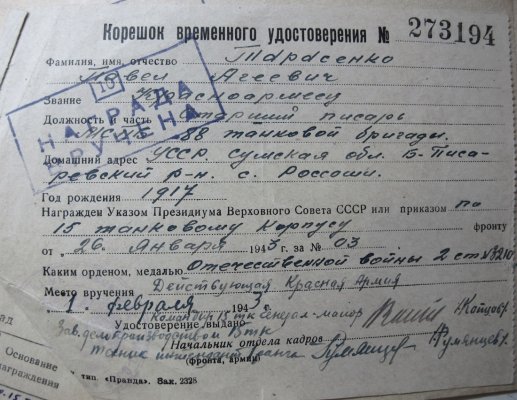 Корешок временного удостоверения № 273194
Фамилия, имя, отчество Тарасенко
Павел Агеевич
Звание Красноармеец
Должность и часть старший писарь
88 танковой бригады.
Домашний адрес УССР Сумская обл. Б-Писа-
ревский р-н. с. Россоши.
Год рождения 1917
Награжден Указом Президиума Верховного Совета СССР или приказом по
15 танковому корпусу фронту
от „ 26 " января 1943 г. за № 03
Каким орденом, медалью Отечественной войны 2 ст №3210
Место вручения Действующая Красная Армия
„ 1 " февраля 1943 г.
Командир 15 тк генерал-майор Копцов
Удостоверение выдано
Зав. делопроизводством ВТК
Начальник отдела кадров
(фронта, армии)
техник интендант ранга Румянцев
тип. «Правда». Зак. 2328
10
НАГРАДА
ВРУЧЕНА
Основание
награждения